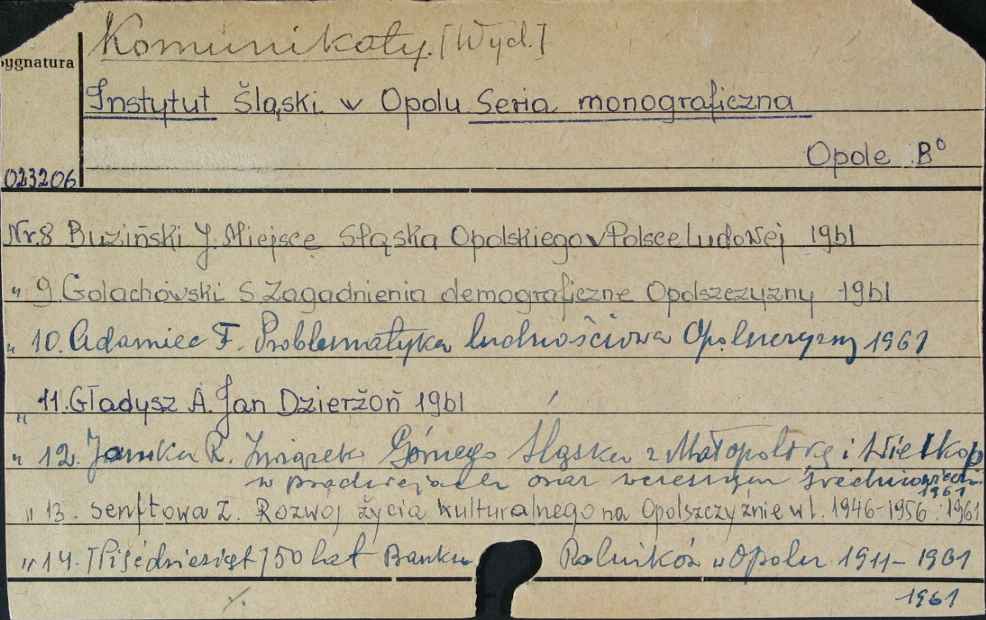 Komunikaty. [Wyd.]
ygnatura
Instytut Śląski w Opolu Seria monograficzna
Opole B°
023206
Nr.8 Buziński J. Miejsce Śląska Opolskiego w Polsce Ludowej 1961
" 9. Golachowski S Zagadnienia demograficzne Opolszczyzny 1961
" 10. Adamiec F. Problematyka ludnościowa Opolszczyzny 1961
" 11. Gładysz A. Jan Dzierżoń 1961
" 12. Jamka R. Związek Górnego Śląska z Małopolską i Wielkop
w pradziejach oraz wczesnym średniowieczu
1961
" 13. Senftowa Z. Rozwój życia kulturalnego na Opolszczyźnie w l. 1946-1956. 1961
" 14. [Pięćdziesiąt] 50 lat Banku Rolników w Opolu 1911-1961
1961